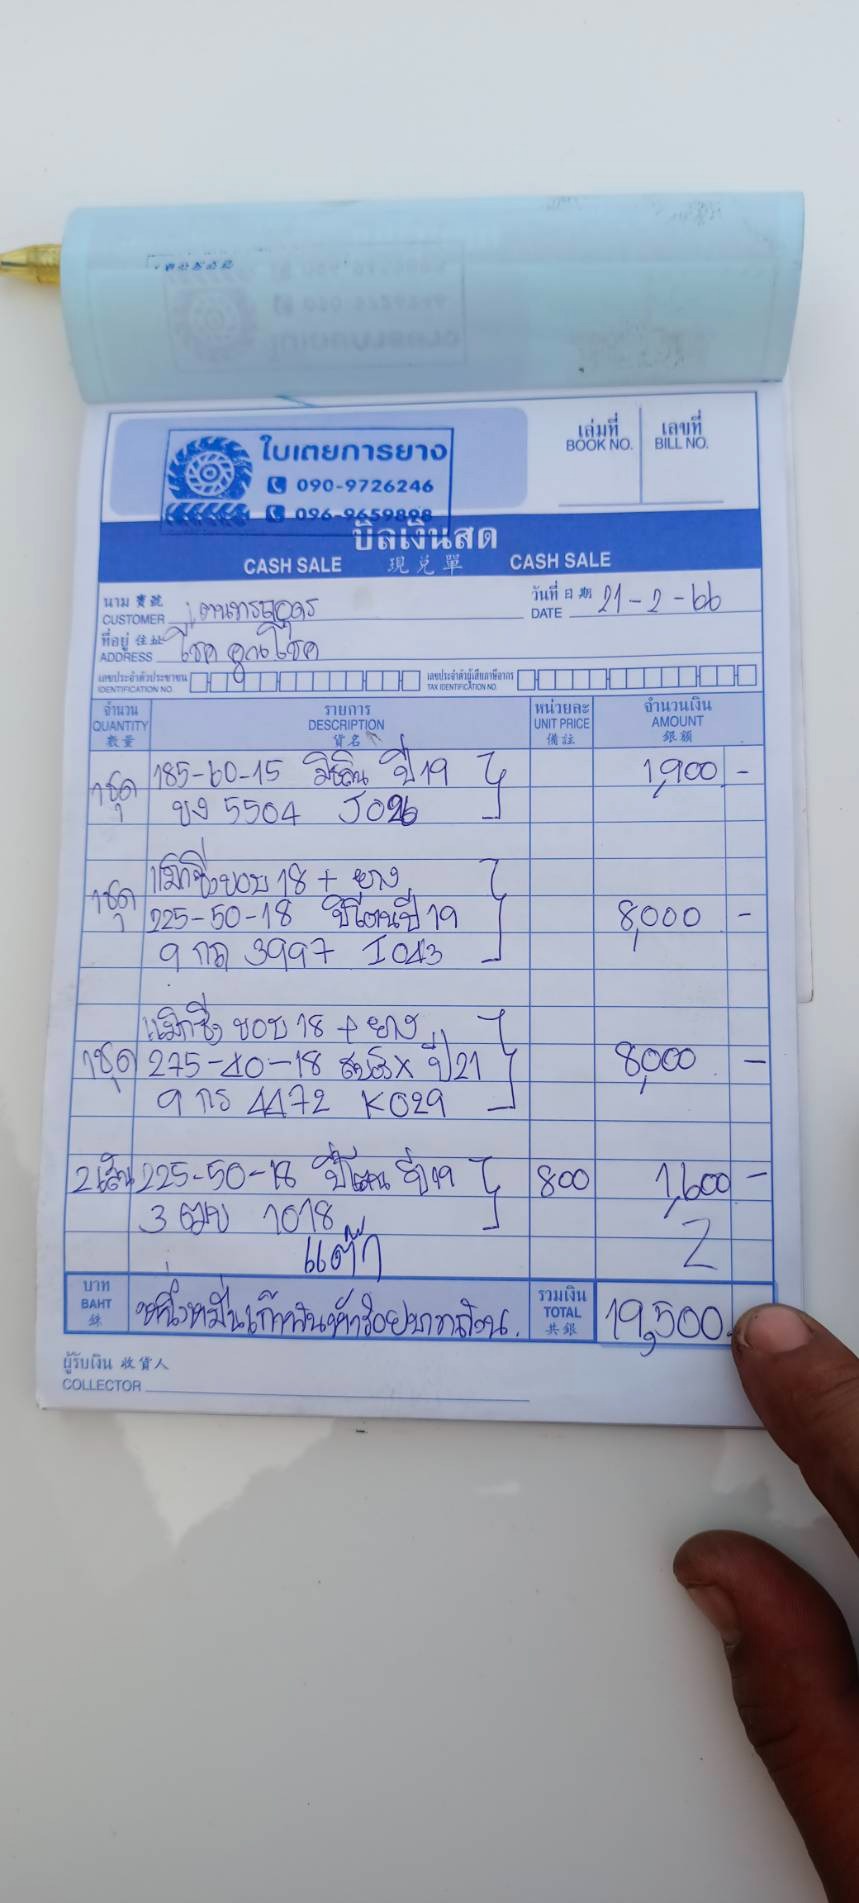 ใบเตยการยาง
090-9726246
096-9659898
เล่มที่ เลขที่
BOOK NO. BILL NO.
บิลเงินสด
CASH SALE 現兌單 CASH SALE
นาม 寶號
CUSTOMER
วันที่ 日期
DATE 21-2-66
ที่อยู่ 住址
ADDRESS โชคอูกนโชค
เลขประจำตัวประชาชน
IDENTIFICATION NO.
เลขประจำตัวผู้เสียภาษีอากร
TAX IDENTIFICATION NO.
จำนวน รายการ หน่วยละ จำนวนเงิน
QUANTITY DESCRIPTION UNIT PRICE AMOUNT
數量 貨名 備註 銀額
1ชุด 185-60-15 มิชลิน ปี 19 1,900 -
ขง 5504 J026
แม็กซิ่งขอบ 18 + ยาง
1ชุด 225-50-18 ปี 19 8,000 -
9 กด 3997 I043
แม็กซิ่ง ขอบ 18 + ยาง
1ชุด 275-40-18 ปี 21 8,000 -
9 กร 4472 K029
2เส้น 225-50-18 ปี 19 800 1,600 -
3 1018
แต๊ก
บาท รวมเงิน
BAHT หนึ่งหมื่นเก้าพันห้าร้อยบาทถ้วน. TOTAL 19,500.
銖 共銀
ผู้รับเงิน 收貨人
COLLECTOR